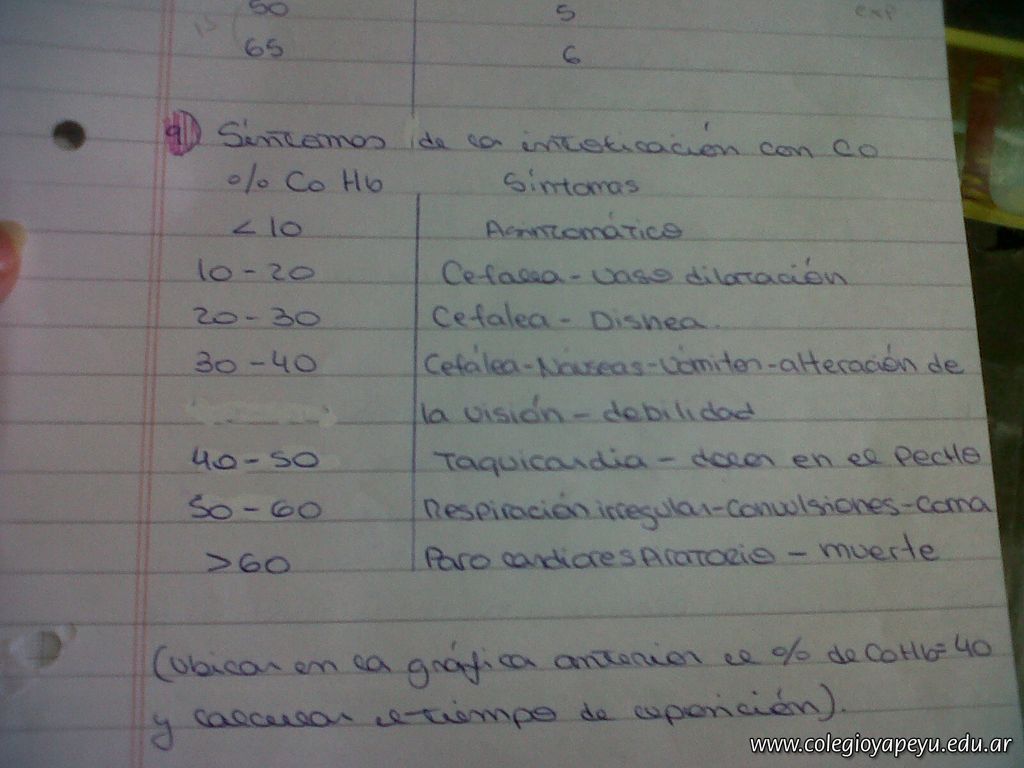 50 5 exp
65 6
9) Síntomas de la intoxicación con CO
% CoHb Síntomas
<10 Asintomático
10-20 Cefalea - vaso dilatación
20-30 Cefalea - Disnea.
30-40 Cefálea-Náuseas-Vómitos-alteración de
la visión - debilidad
40-50 Taquicardia - dolor en el pecho
50-60 Respiración irregular-convulsiones-coma
>60 Paro cardiorespiratorio - muerte
(Ubicar en la gráfica anterior el % de CoHb=40
y calcular el tiempo de exposición).
www.colegioyapeyu.edu.ar